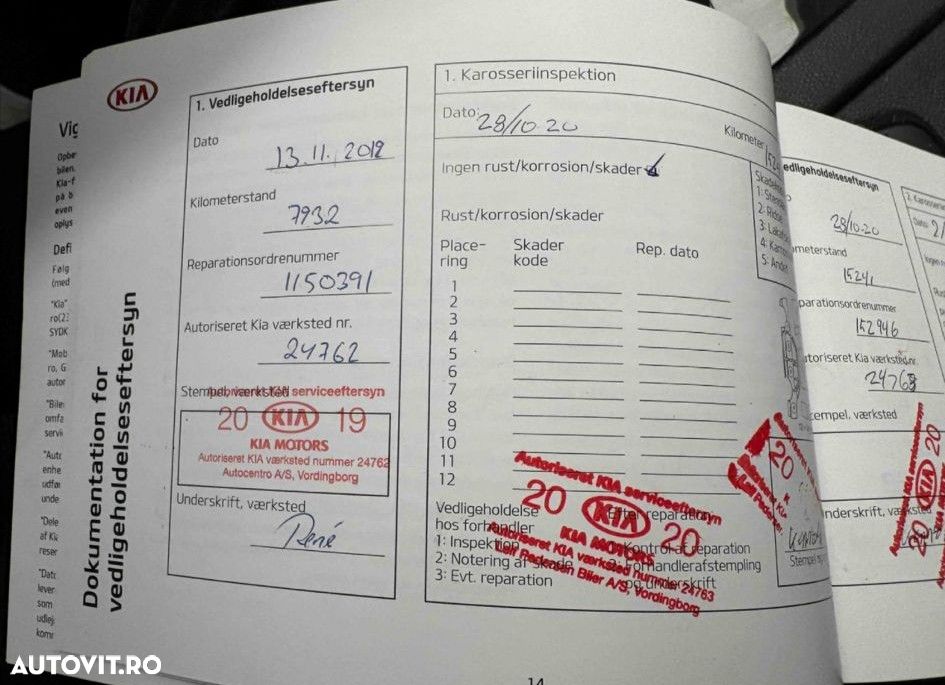 KIA
Vig
Opbe
bilen.
Kia-f
på b
even
oplys
Defi
Følg
(med
"Kia"
SYDK
"Mob
ro, G
autor
"Bile
omfa
servi
"Auto
enhe
udfør
unde
"Dele
af Ki
reser
"Date
lever
som
udlej
komr
Dokumentation for
vedligeholdelseseftersyn
1. Vedligeholdelseseftersyn
Dato
13.11.2019
Kilometerstand
7932
Reparationsordrenummer
1150391
Autoriseret Kia værksted nr.
24762
Stempel, værksted
serviceeftersyn
20 KIA 19
KIA MOTORS
Autoriseret KIA værksted nummer 24762
Autocentro A/S, Vordingborg
Underskrift, værksted
René
1. Karosseriinspektion
Dato: 28/10.20
Kilometer
Ingen rust/korrosion/skader
Rust/korrosion/skader
Place-
ring
Skader
kode
Rep. dato
1
2
3
4
5
6
7
8
9
10
11
12
Vedligeholdelse
hos forhandler
1: Inspektion
2: Notering af skade
3: Evt. reparation
Efter reparation
Kontrol af reparation
Forhandlerafstempling
og underskrift
Autoriseret KIA serviceeftersyn
20 KIA 20
KIA MOTORS
Autoriseret KIA værksted nummer 24763
Leif Pedersen Biler A/S, Vordingborg
14
edligeholdelseseftersyn
28/10.20
ometerstand
15241
parationsordrenummer
152946
utoriseret Kia værksted nr.
24763
tempel, værksted
nderskrift, værksted
20 KIA
2. Karosserii
Dato:
Ingen
AUTOVIT.RO